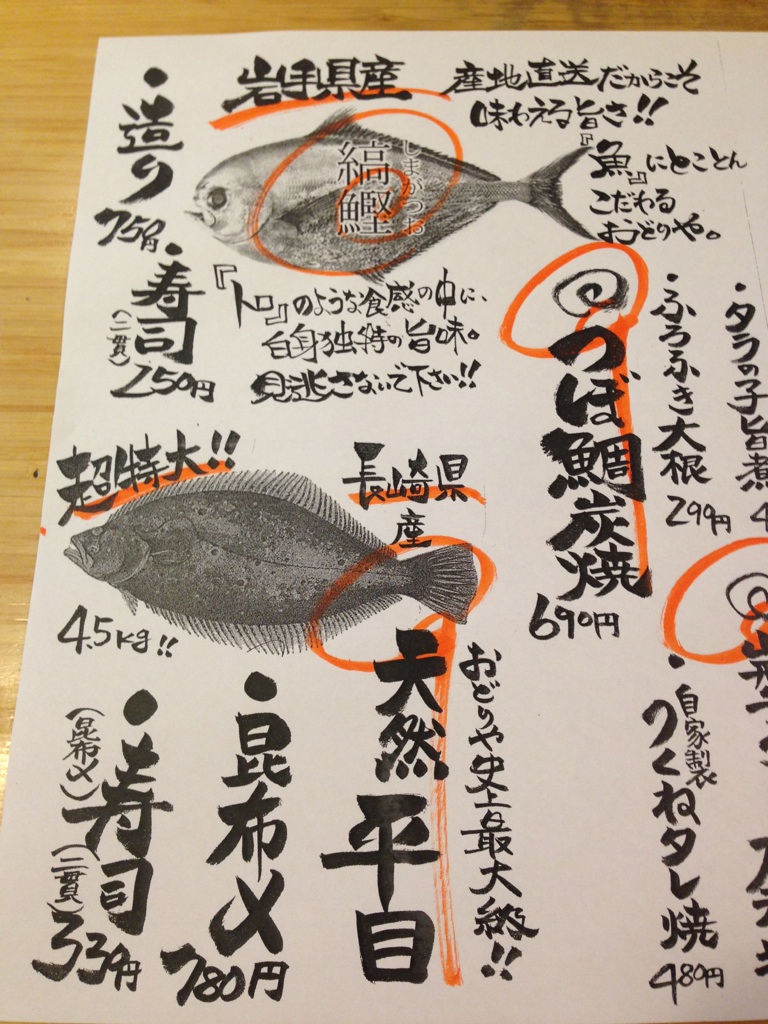 岩手県産
産地直送だからこそ
味わえる旨さ!!
『魚』にとことん
こだわる
おどりや。
縞鰹
しまがつお
・造り
750円
・寿司
(二貫)
250円
『トロ』のような食感の中に、
白身独特の旨味。
見逃さないで下さい!!
つぼ鯛炭焼
690円
・ふろふき大根
299円
・タラの子旨煮
超特大!!
長崎県
産
4.5kg!!
天然平目
おどりや史上最大級!!
・昆布〆
780円
・寿司
(昆布〆)
(二貫)
339円
・自家製
つくねタレ焼
480円